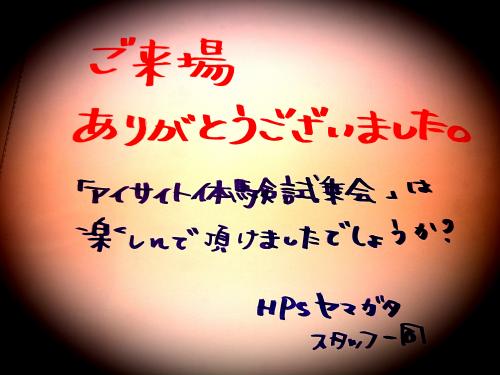 ご来場
ありがとうございました。
「アイサイト体験試乗会」は
楽しんで頂けましたでしょうか?
HPSヤマガタ
スタッフ一同